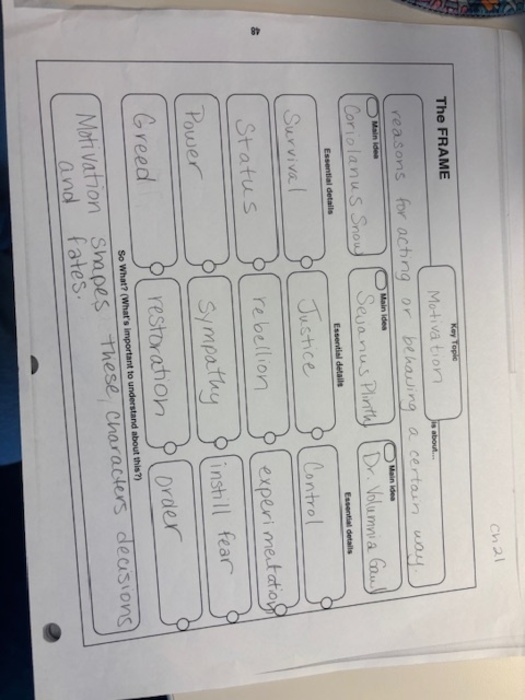 Ch 21
The FRAME
Key Topic
Motivation
is about...
reasons for acting or behaving a certain way.
Main idea
Coriolanus Snow
Main idea
Sejanus Plinth
Main idea
Dr. Volumnia Gaul
Essential details
Essential details
Essential details
Survival
Justice
Control
Status
rebellion
experimentation
Power
sympathy
instill fear
Greed
restoration
order
So What? (What's important to understand about this?)
Motivation shapes these, characters decisions
and fates.